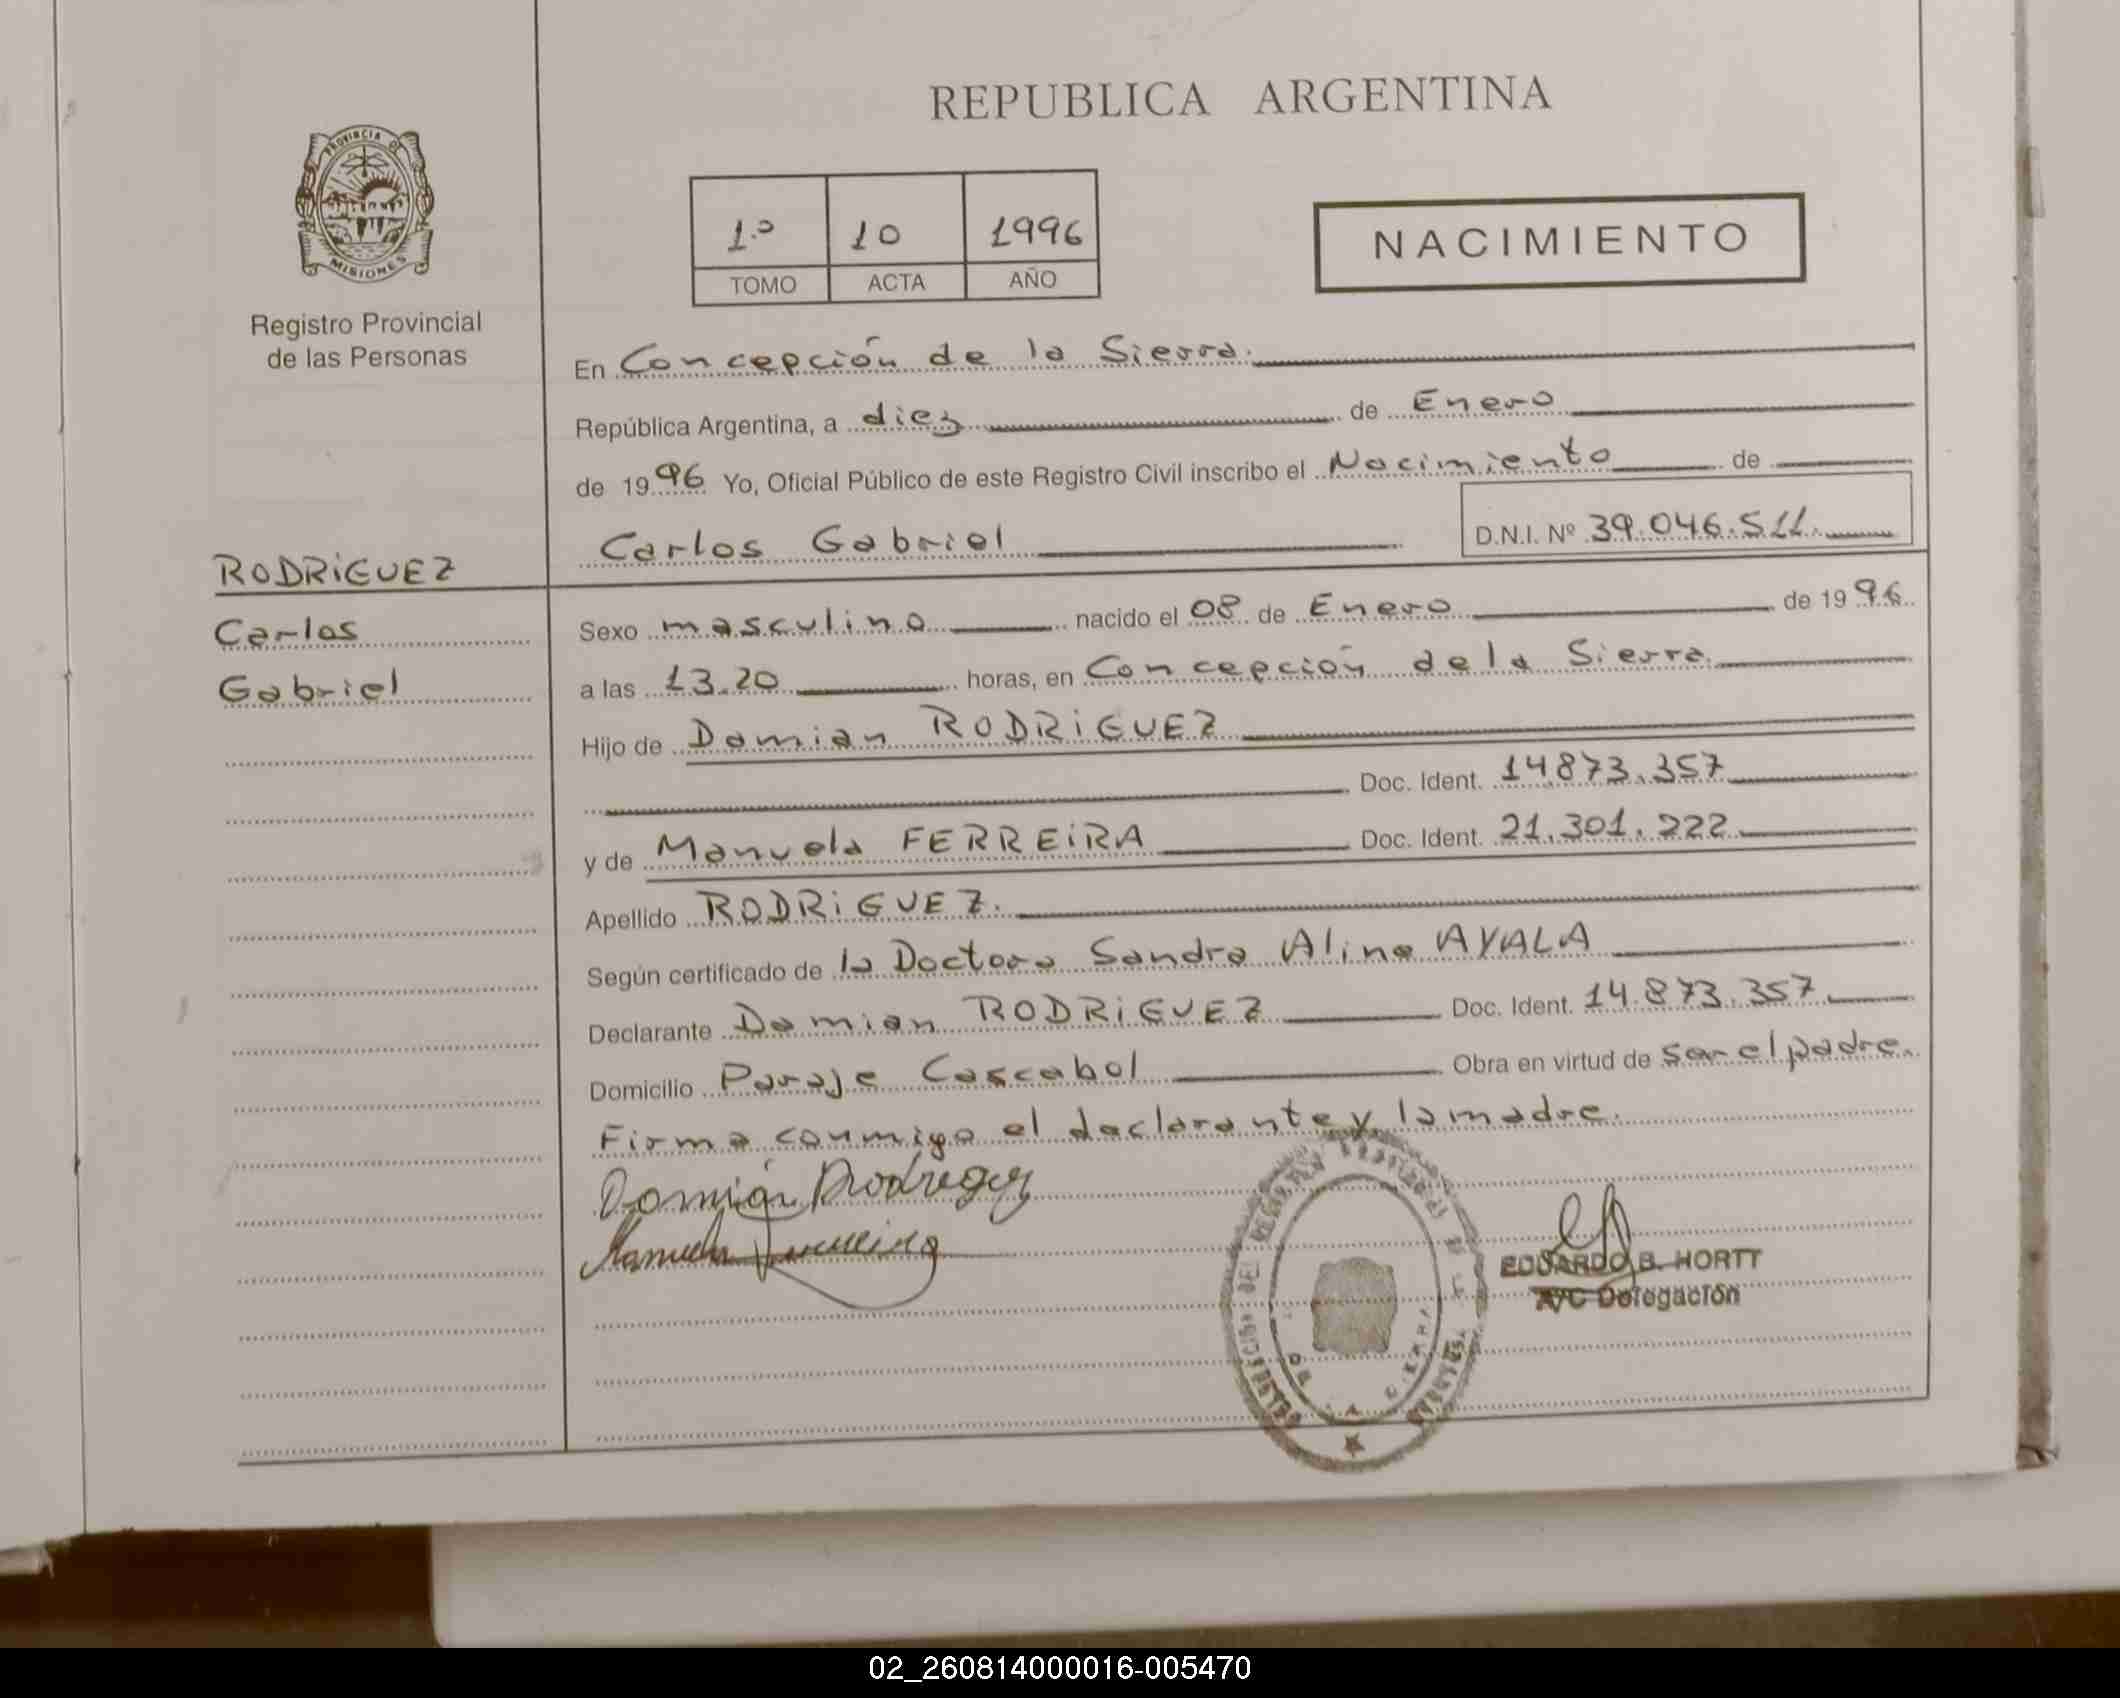 REPUBLICA ARGENTINA
PROVINCIA DE
MISIONES
Registro Provincial
de las Personas
1º 10 1996
TOMO ACTA AÑO
NACIMIENTO
En Concepción de la Sierra.
República Argentina, a diez de Enero
de 1996 Yo, Oficial Público de este Registro Civil inscribo el Nacimiento de
Carlos Gabriel D.N.I. Nº 39.046.511.
RODRiGUEZ
Carlos
Gabriel
Sexo masculino nacido el 08 de Enero de 1996
a las 13.20 horas, en Concepción de la Sierra.
Hijo de Damian RODRiGUEZ
Doc. Ident. 14.873.357
y de Manuela FERREiRA Doc. Ident. 21.301.222
Apellido RODRiGUEZ.
Según certificado de la Doctora Sandra Alina AYALA
Declarante Damian RODRiGUEZ Doc. Ident. 14.873.357
Domicilio Paraje Cascabel Obra en virtud de ser el padre.
Firma conmigo el declarante y la madre.
Damián Rodriguez
Manuela Ferreira
EDUARDO B. HORTT
A/C Delegación
02_260814000016-005470